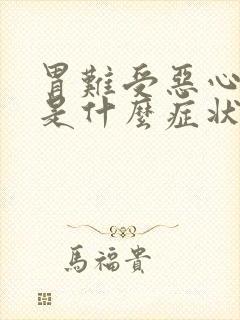 胃難受惡心
是什麼症狀
馬福貴